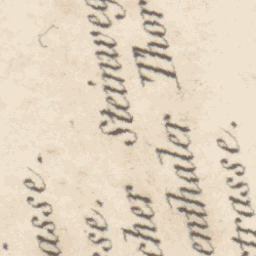 asse.
se.
cher Steinweg
enthaler Thor
trasse.